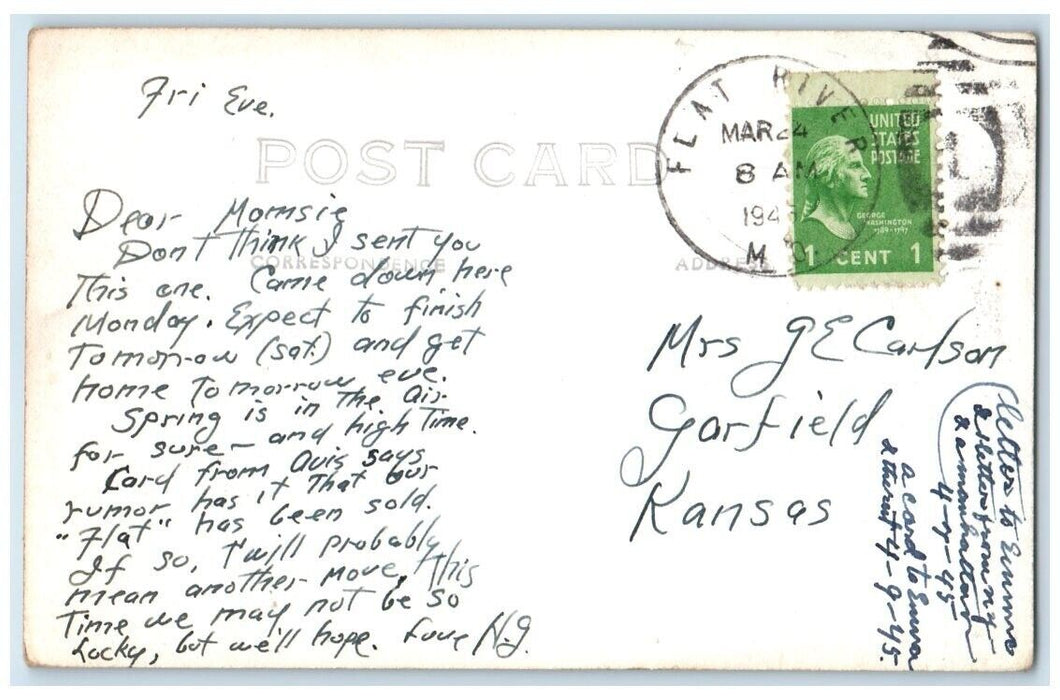 Fri Eve.
POST CARD
Dear Momsie
Don't think I sent you
CORRESPONDENCE
This one. Came down here
Monday. Expect to finish
Tomorrow (Sat.) and get
home Tomorrow eve.
Spring is in The air
for sure - and high Time.
Card from Avis says
rumor has it That our
"Flat" has been sold.
If so, T'will probably
mean another move, This
Time we may not be so
Lucky, but we'll hope. Love N.G.
FLAT RIVER
MAR 24
8 AM
194
M
UNITED
STATES
POSTAGE
GEORGE
WASHINGTON
1789-1797
1 CENT 1
ADDRESS
Mrs G E Carlson
Garfield
Kansas
letter to Emma
& letter from
4-7-45
a card to Emma
4-9-45.